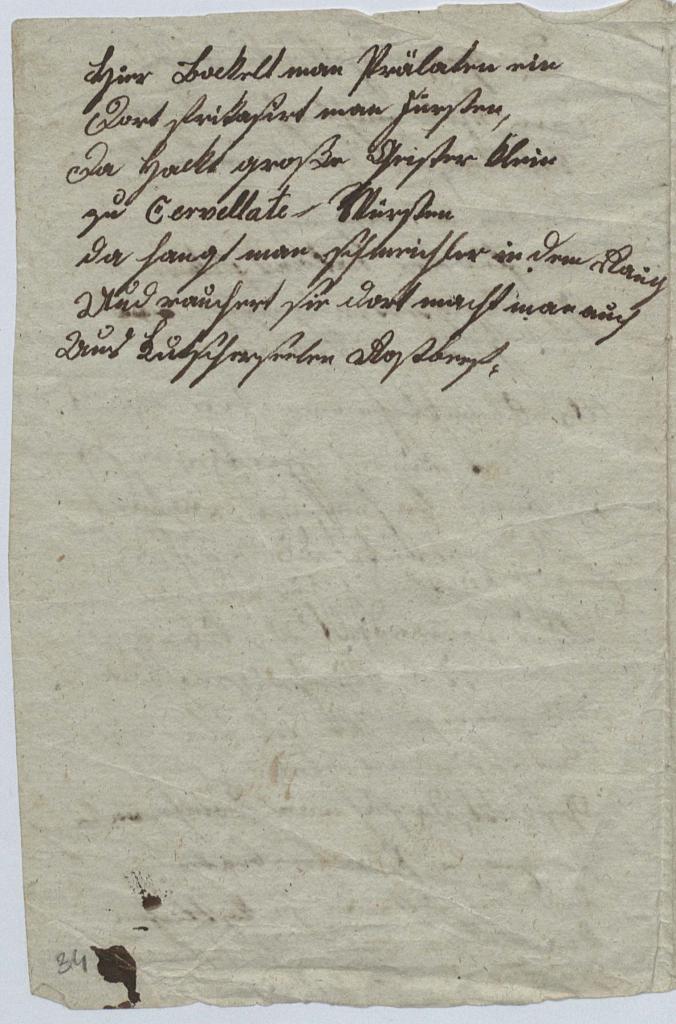 Hier Bockelt man Prälaten ein
Dort frikasirt man Fürsten,
Da Hackt große Geister klein
zu Cervellate-Würsten
da hangt man schmeichler in dem Rauch
Und rauchert sie dort macht man auch
Aus Kutscherseelen Rostbeef.
34